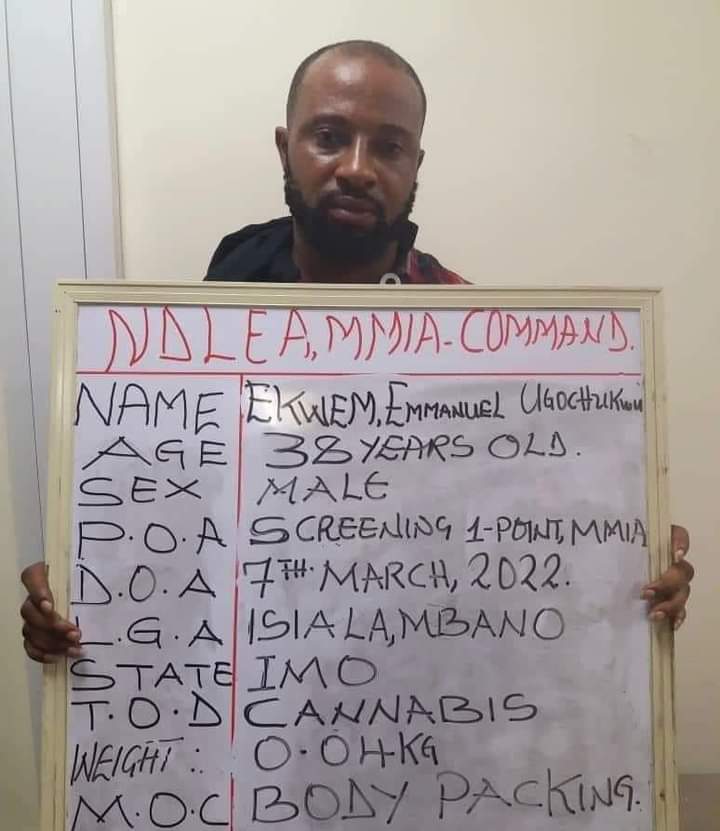 NDLEA, MMIA-COMMAND.
NAME EKWEM, EMMANUEL UGOCHUKWU
AGE 38 YEARS OLD.
SEX MALE
P.O.A SCREENING 1-POINT, MMIA
D.O.A 7TH. MARCH, 2022.
L.G.A ISIALA, MBANO
STATE IMO
T.O.D CANNABIS
WEIGHT:. 0.04KG
M.O.C BODY PACKING.